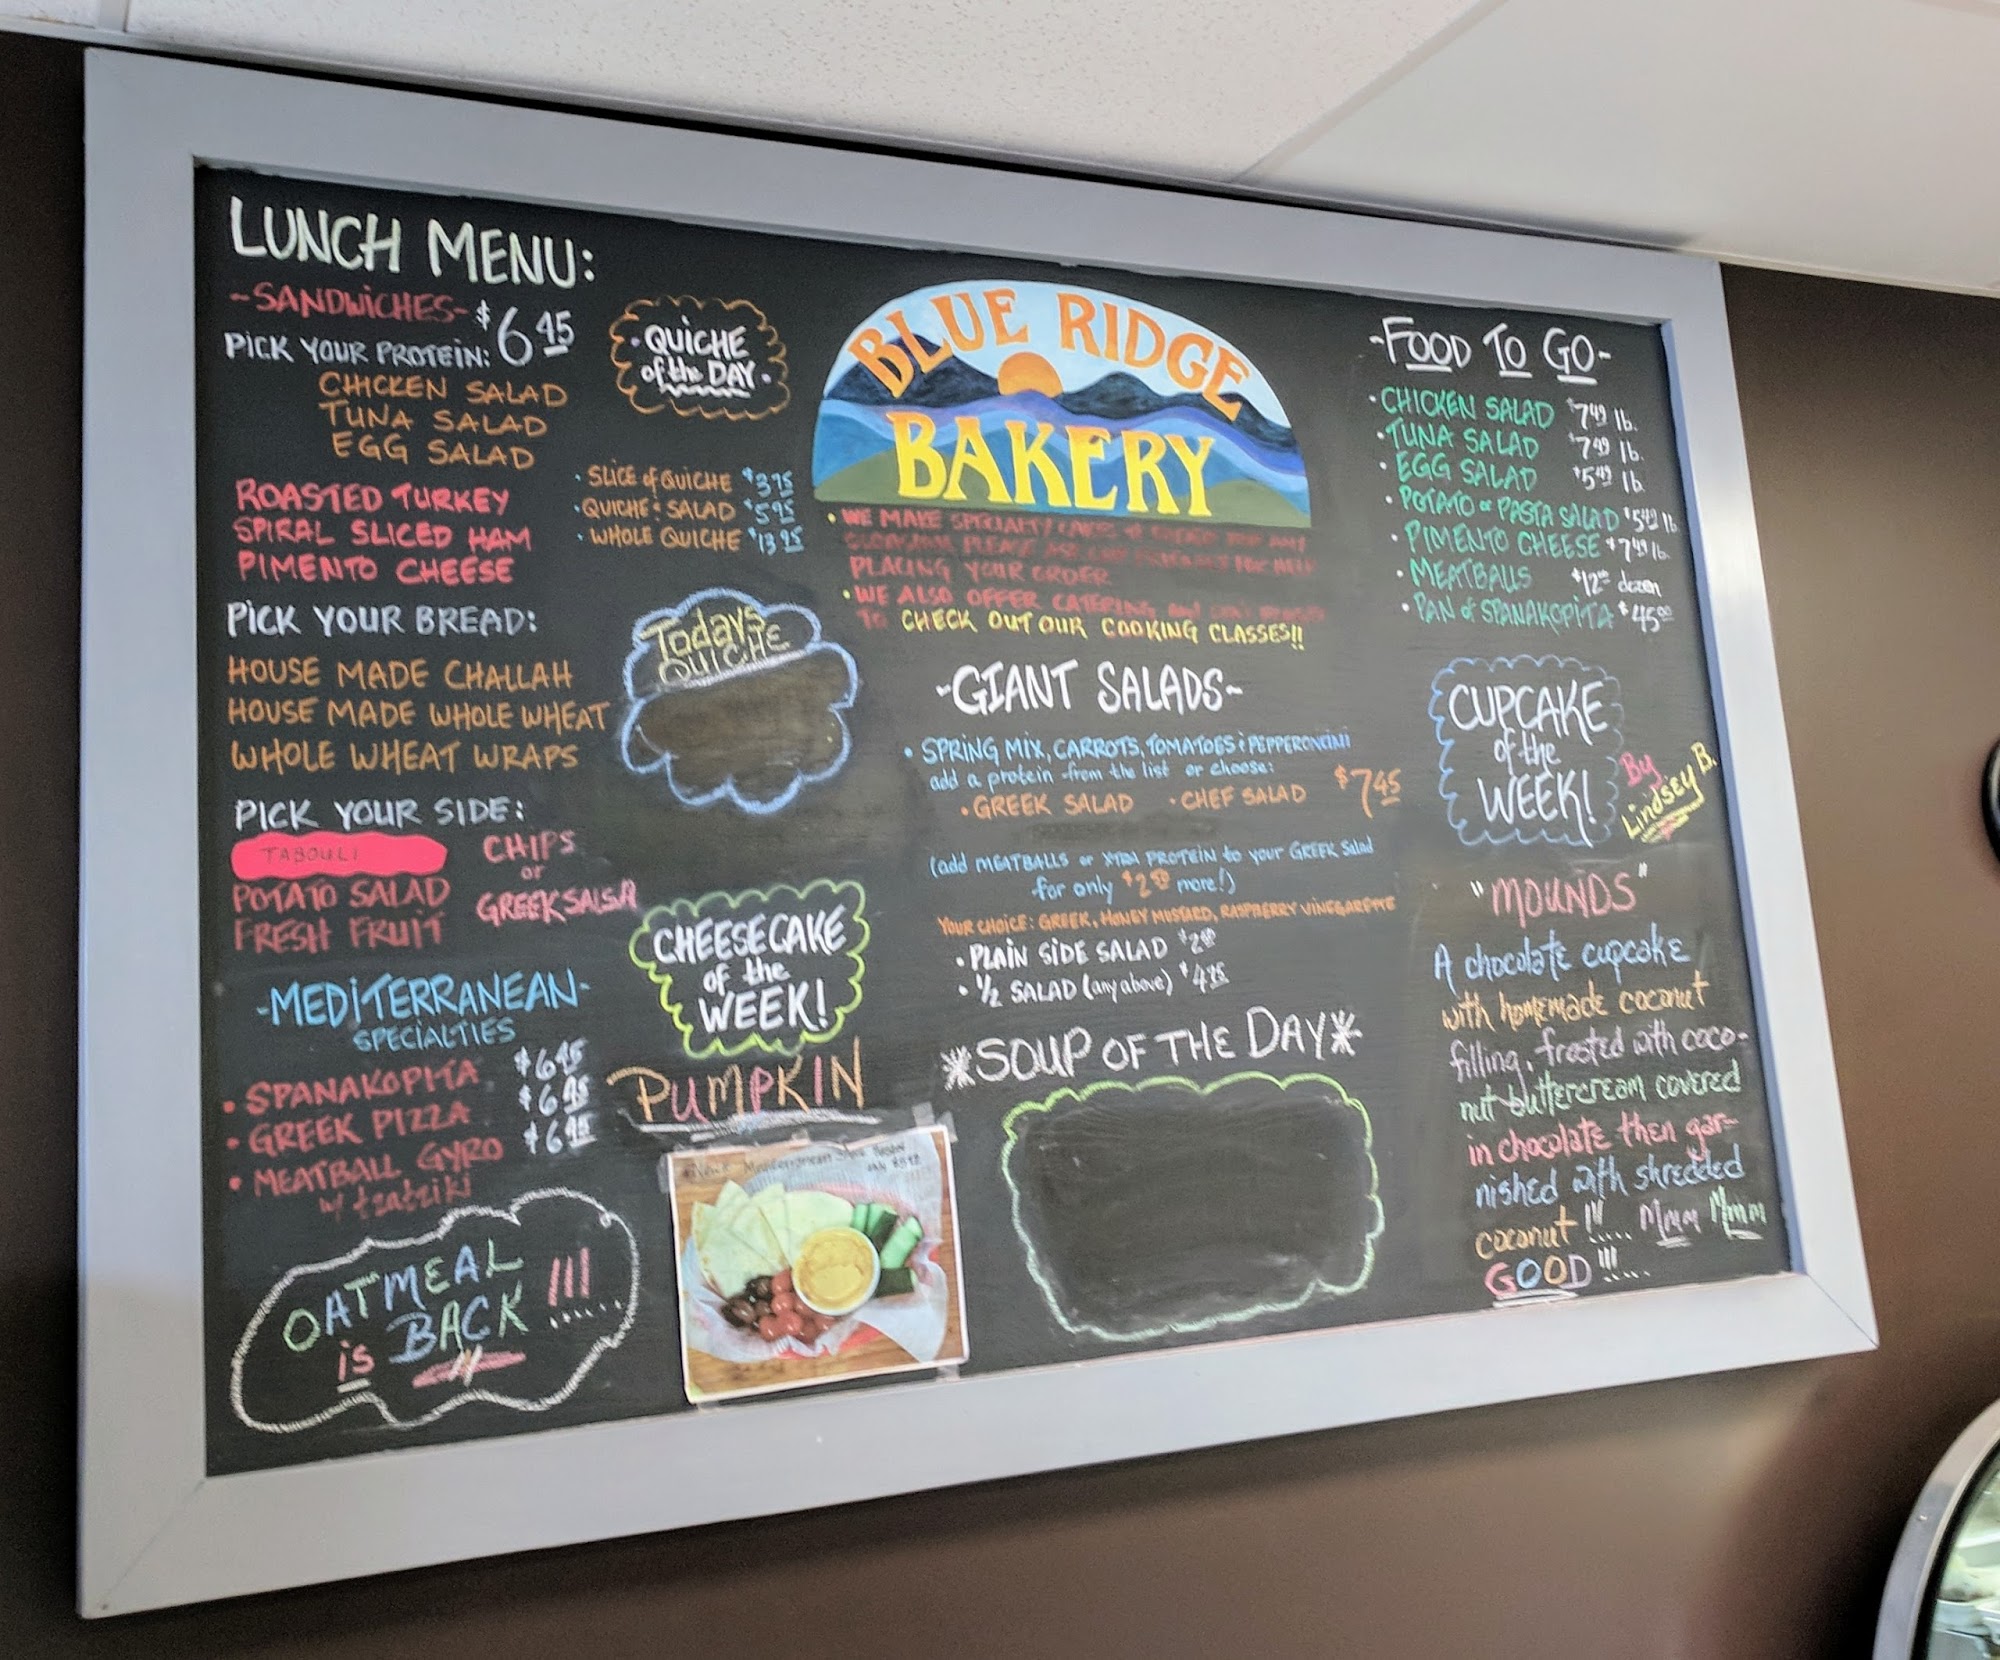 LUNCH MENU:
-SANDWICHES- $6 45
PICK YOUR PROTEIN:
CHICKEN SALAD
TUNA SALAD
EGG SALAD
ROASTED TURKEY
SPIRAL SLICED HAM
PIMENTO CHEESE
PICK YOUR BREAD:
HOUSE MADE CHALLAH
HOUSE MADE WHOLE WHEAT
WHOLE WHEAT WRAPS
PICK YOUR SIDE:
TABOULI
POTATO SALAD
FRESH FRUIT
CHIPS
or
GREEK SALSA
-MEDITERRANEAN-
SPECIALTIES
• SPANAKOPITA $6.95
• GREEK PIZZA $6.95
• MEATBALL GYRO $6.95
w/ tzatziki
OATMEAL
is BACK !!! .....
• QUICHE
of the DAY •
• SLICE of QUICHE $3 75
• QUICHE & SALAD $5 95
• WHOLE QUICHE $13 95
Todays
QUICHE
CHEESECAKE
of the
WEEK!
PUMPKIN
Mediterranean
BLUE RIDGE
BAKERY
• WE MAKE SPECIALTY CAKES
PLACING YOUR ORDER
• WE ALSO OFFER CATERING
TO CHECK OUT OUR COOKING CLASSES!!
-GIANT SALADS-
• SPRING MIX, CARROTS, TOMATOES & PEPPERONCINI
add a protein from the list or choose:
• GREEK SALAD • CHEF SALAD $7 45
(add MEATBALLS or XTRA PROTEIN to your GREEK Salad
for only $2 more!)
YOUR CHOICE: GREEK, HONEY MUSTARD, RASPBERRY VINEGARETTE
• PLAIN SIDE SALAD $2
• 1/2 SALAD (any above) $4.75
*SOUP OF THE DAY*
-FOOD TO GO-
• CHICKEN SALAD $7 49 lb.
• TUNA SALAD $7 49 lb.
• EGG SALAD $5 49 lb.
• POTATO or PASTA SALAD $5 49 lb
• PIMENTO CHEESE $7 49 lb.
• MEATBALLS $12 00 dozen
• PAN of SPANAKOPITA $45 00
CUPCAKE
of the
WEEK!
By
Lindsey B.
"MOUNDS"
A chocolate cupcake
with homemade coconut
filling, frosted with coco-
nut buttercream covered
in chocolate then gar-
nished with shredded
coconut !!! ..... Mmm Mmm
GOOD !!! .....